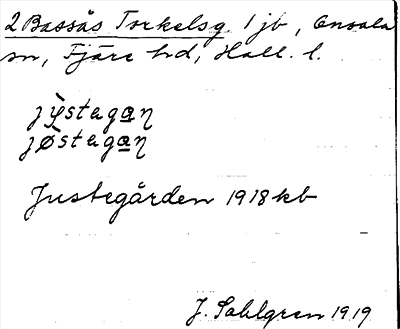 2 Bassås Torkelsg. 1 jb, Onsala
sn, Fjäre hd, Hall. l.
jy̖stagạn
jø̀stagan
Justegården 1918 kb
J. Sahlgren 1919